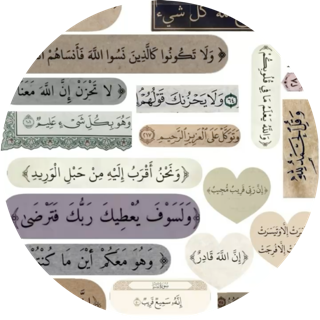 كل شيء
وَلَا تَكُونُوا كَالَّذِينَ نَسُوا اللَّهَ فَأَنسَاهُمْ
لَا تَحْزَنْ إِنَّ اللَّهَ مَعَنَا
وَلَا يَحْزُنكَ قَوْلُهُمْ
وَاللَّهُ يَعْلَمُ مَا فِي قُلُوبِكُمْ
وَهُوَ بِكُلِّ شَيْءٍ عَلِيمٌ
وَتَوَكَّلْ عَلَى الْعَزِيزِ الرَّحِيمِ ٢١٧
وَقُلِ الْحَمْدُ لِلَّهِ
وَنَحْنُ أَقْرَبُ إِلَيْهِ مِنْ حَبْلِ الْوَرِيدِ
إِنَّ رَبِّي قَرِيبٌ مُجِيبٌ
وَلَسَوْفَ يُعْطِيكَ رَبُّكَ فَتَرْضَىٰ
وَهُوَ مَعَكُمْ أَيْنَ مَا كُنْتُمْ
إِنَّ اللَّهَ قَادِرٌ
إِنَّهُ سَمِيعٌ قَرِيبٌ